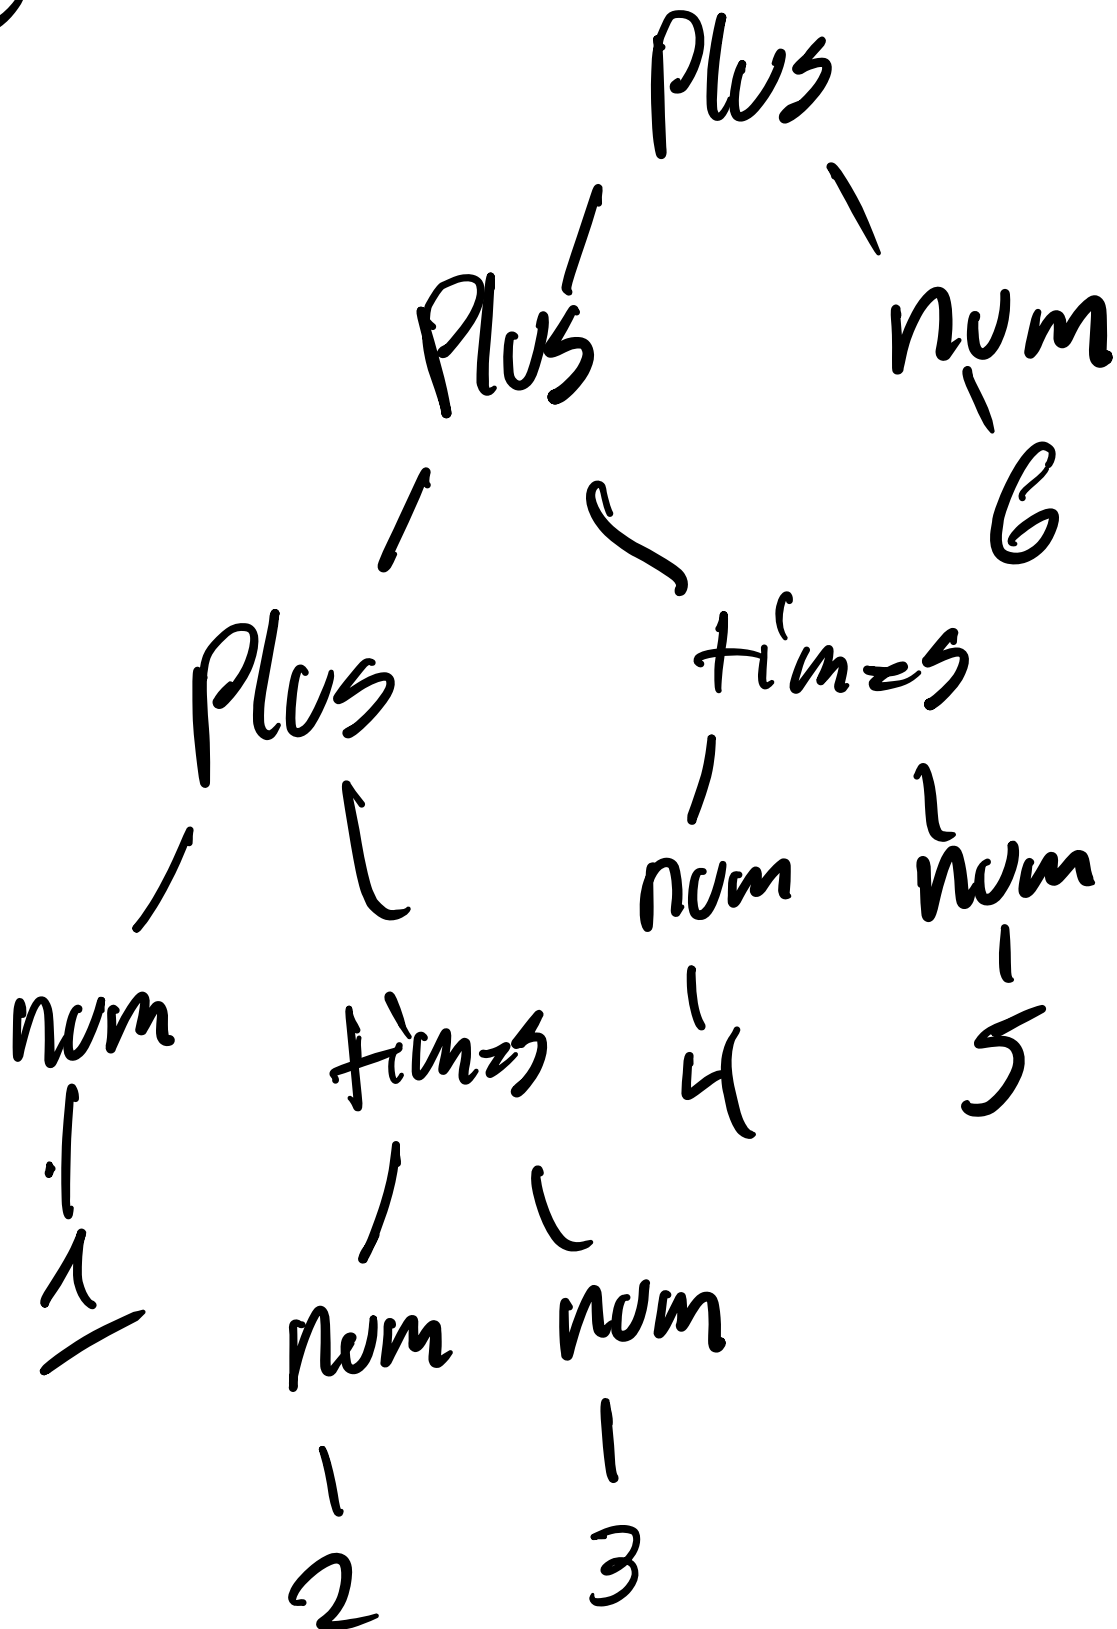 Plus
Plus num
6
Plus times
num num
num times 4 5
1
num num
2 3